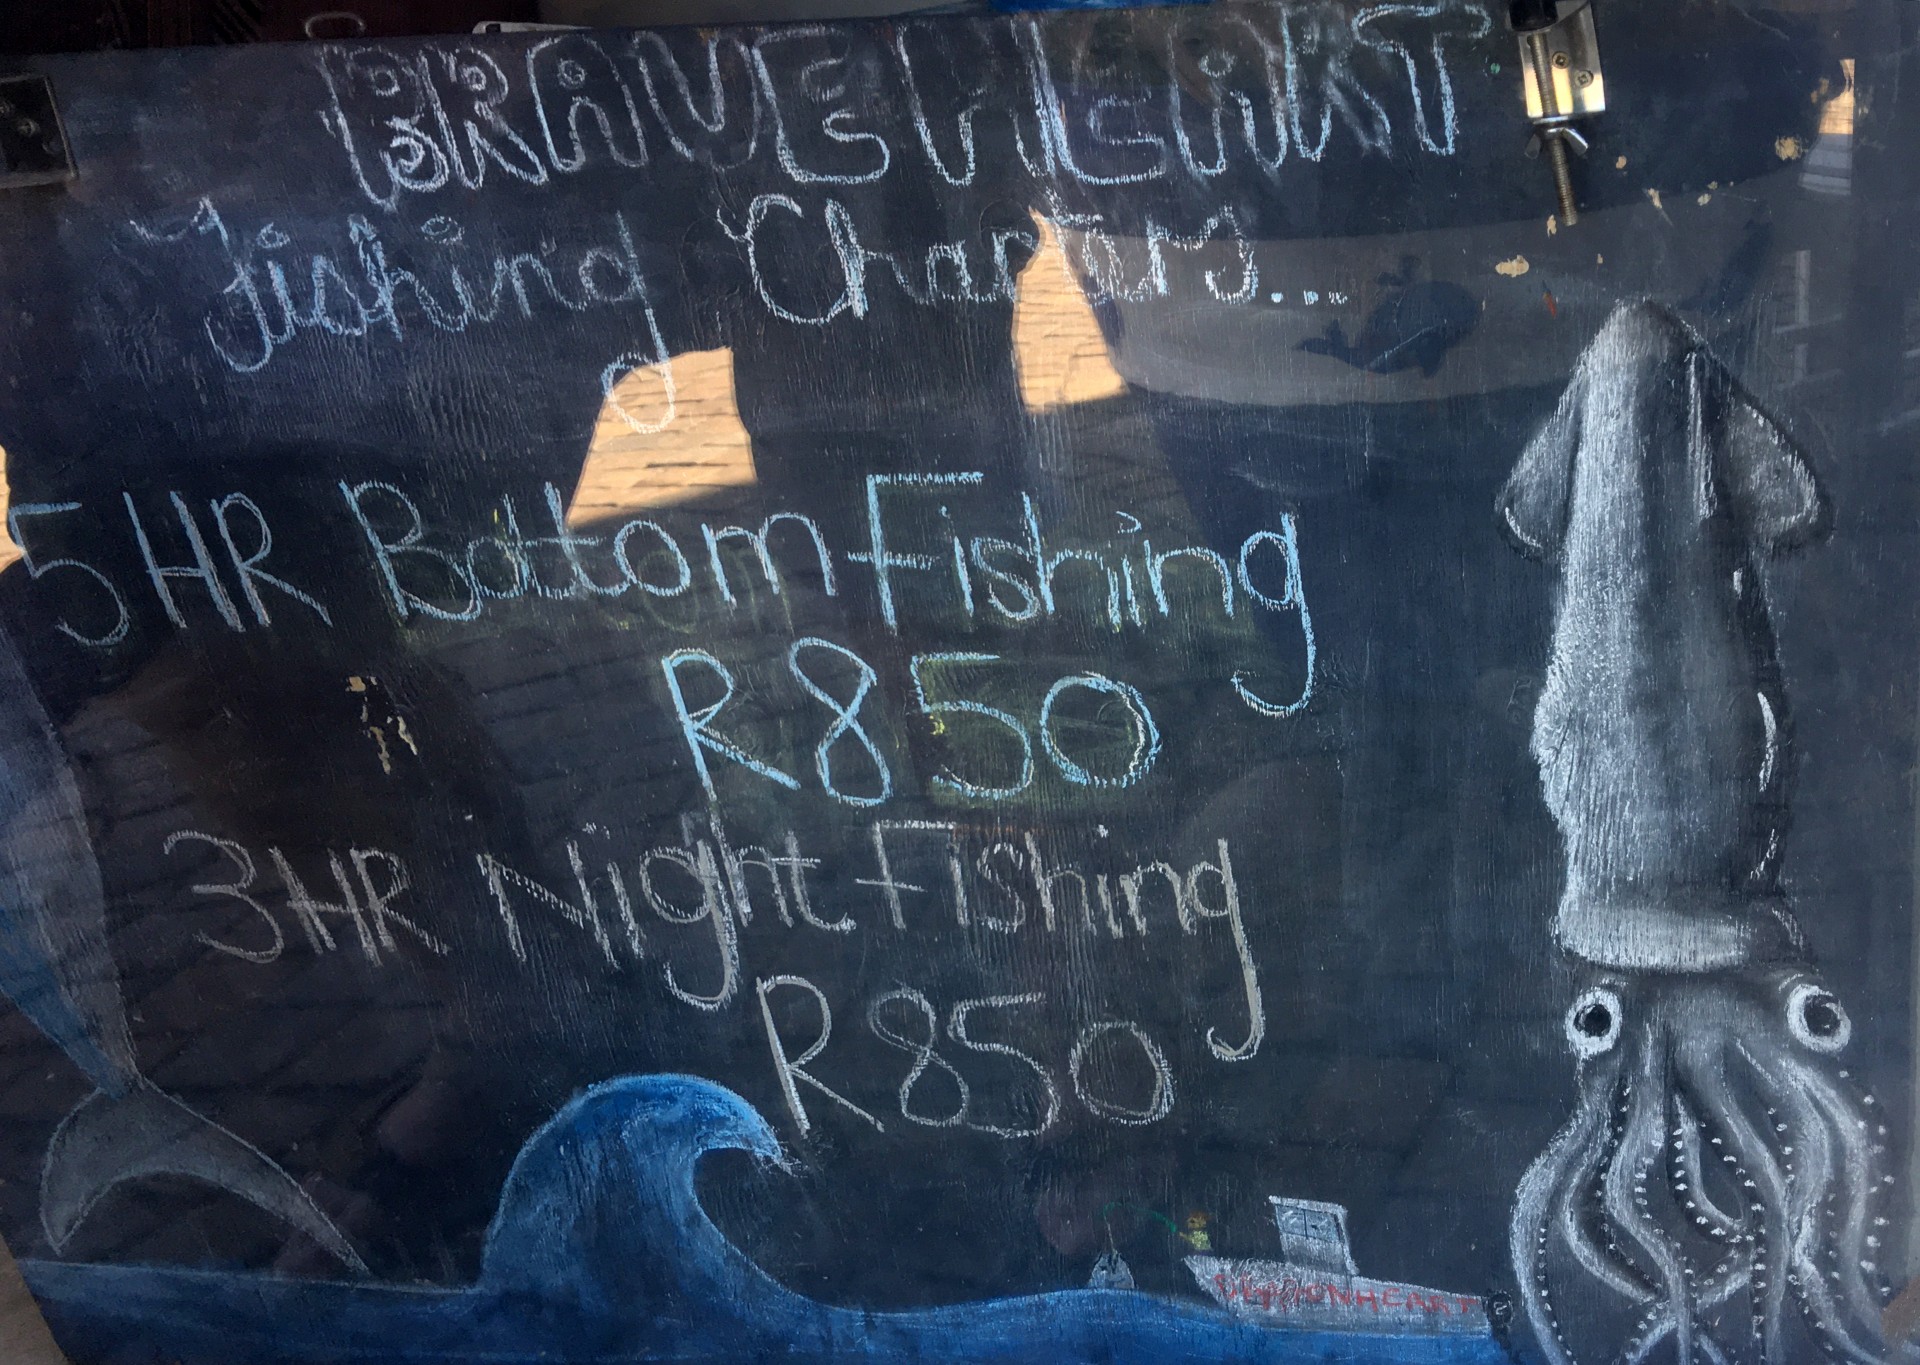 BRAVEHEART
Fishing Charters...
5HR Bottom Fishing
R850
3HR Night Fishing
R850